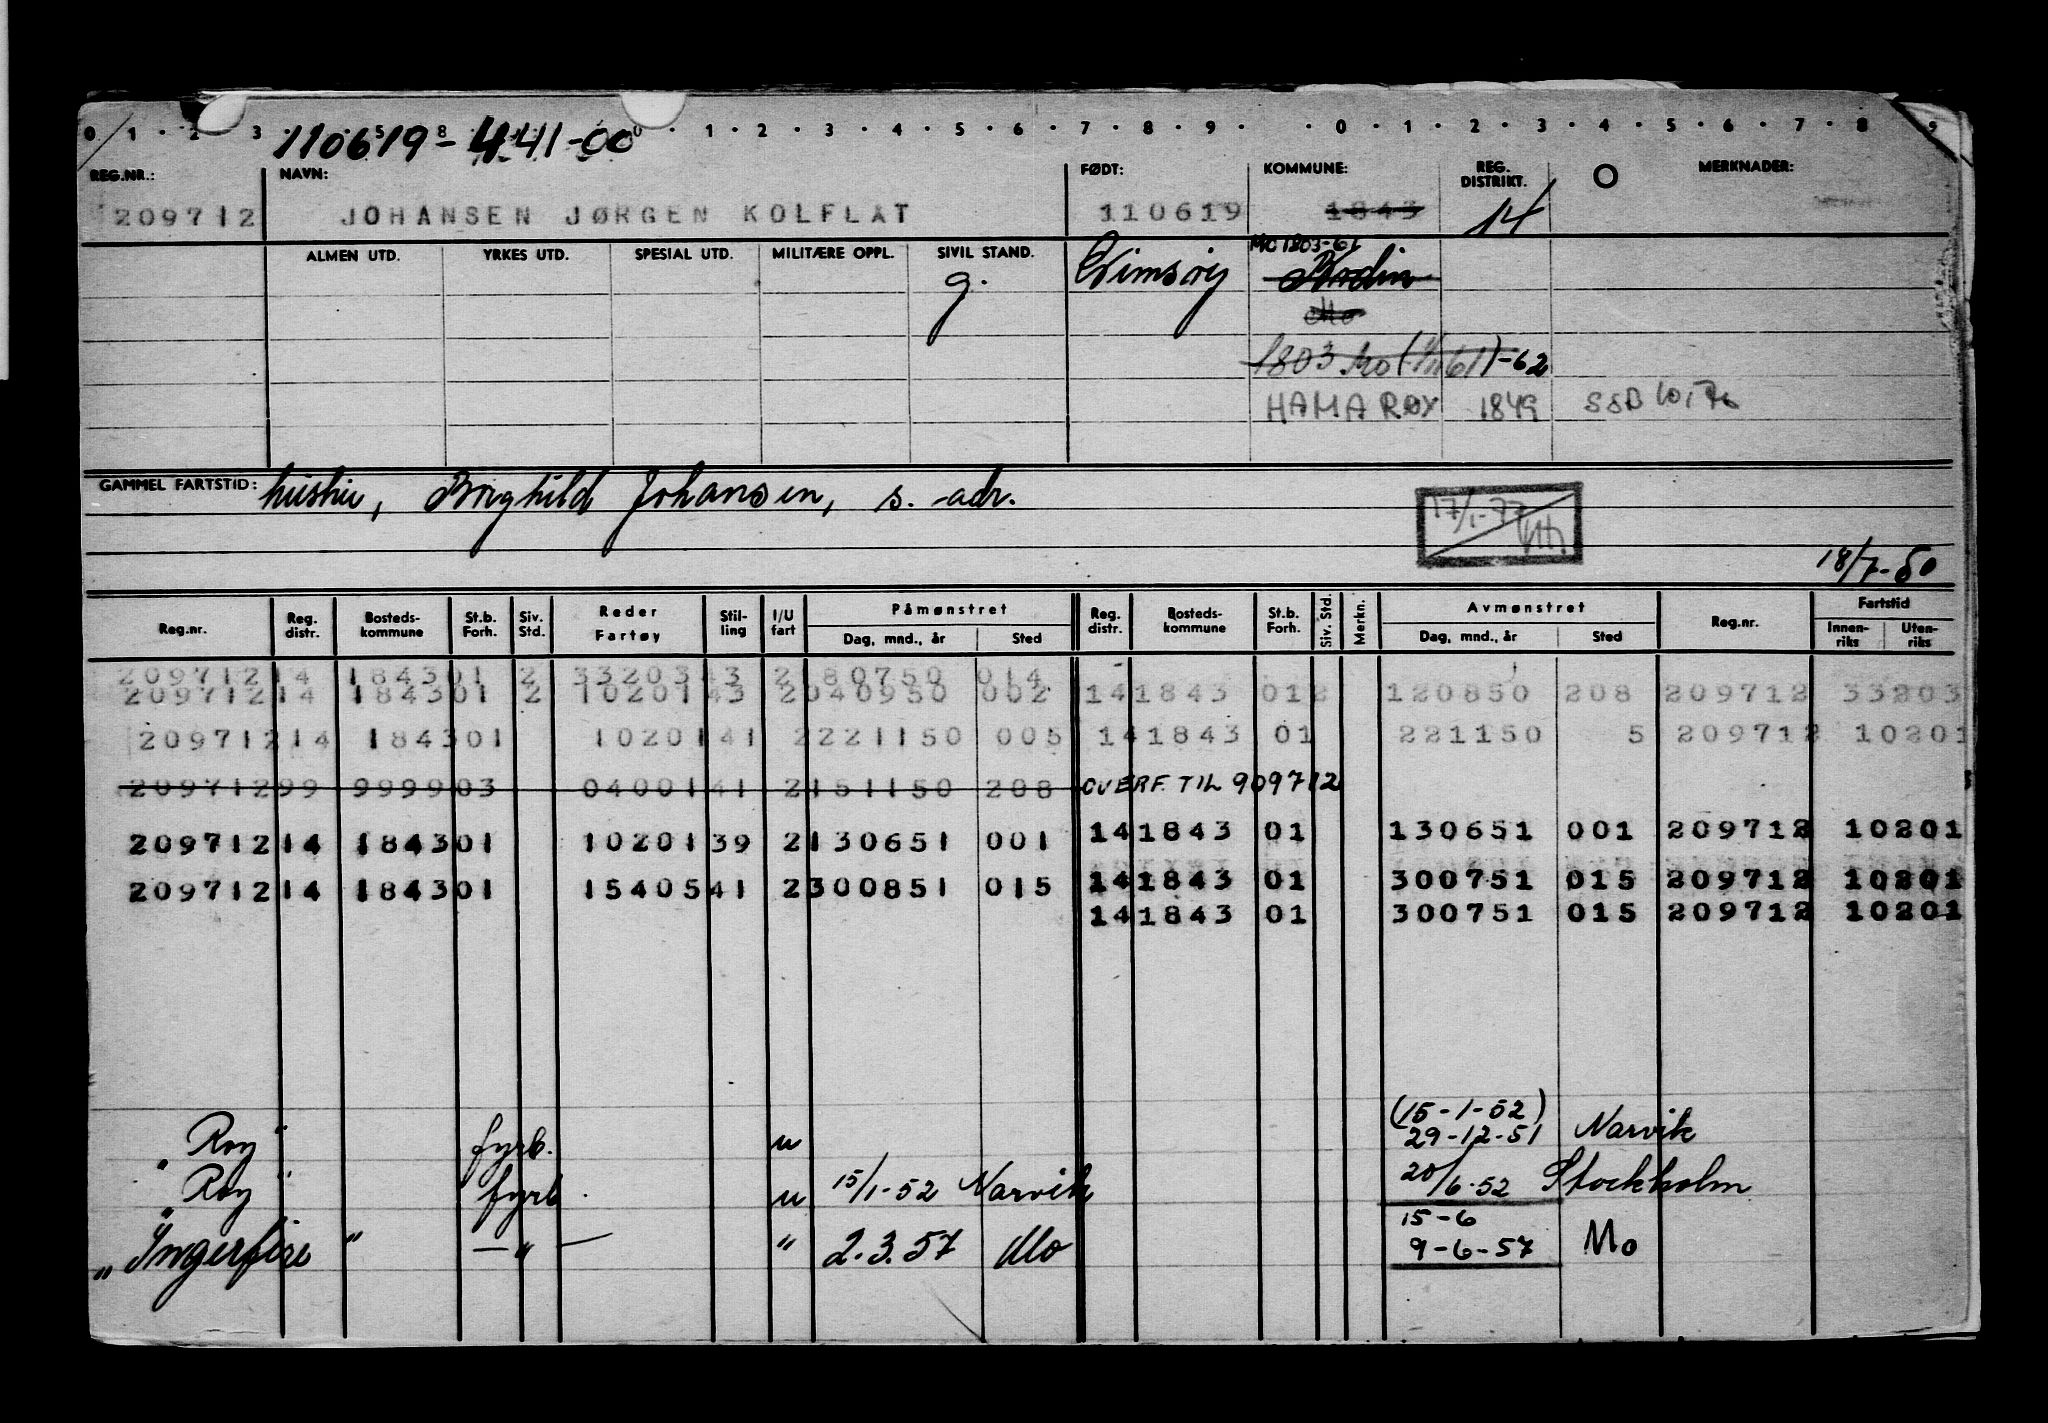 0 1 · 2 3 · 1 · 2 · 3 · 4 · 5 · 6 · 7 · 8 · 9 · · 0 · 1 · 2 · 3 · 4 · 5 · 6 · 7 · 8 9
110619-441-00
REG.NR.: NAVN: FØDT: KOMMUNE: REG. DISTRIKT. MERKNADER:
209712 JOHANSEN JØRGEN KOLFLAT 110619 1843 14
ALMEN UTD. YRKES UTD. SPESIAL UTD. MILITÆRE OPPL. SIVIL STAND. MO 1803-61
g. Gimsøy Bodin
Mo
1803 Mo (1/1161)-62
HAMARØY 1849 SSB
GAMMEL FARTSTID: hustru, Borghild Johansen, s. adr.
17/1-77
18/7-50
Reg.nr. Reg. distr. Bosteds-kommune St.b. Forh. Siv. Std. Reder Fartøy Stil-ling I/U fart Påmønstret Reg. distr. Bosteds-kommune St.b. Forh. Siv. Std. Merkn. Avmønstret Reg.nr. Fartstid
Dag, mnd., år Sted Dag, mnd., år Sted Innen-riks Uten-riks
209712 14 1843 01 2 33203 43 2 180750 014
209712 14 1843 01 2 10201 43 2 040950 002 14 1843 01 2 120850 208 209712 33203
209712 14 1843 01 10201 41 2 221150 005 14 1843 01 221150 5 209712 10201
209712 99 9999 03 04001 41 2 151150 208 OVERF. TIL 909712
209712 14 1843 01 10201 39 2 130651 001 14 1843 01 130651 001 209712 10201
209712 14 1843 01 15405 41 2 300851 015 14 1843 01 300751 015 209712 10201
14 1843 01 300751 015 209712 10201
(15-1-52)
"Roy" fyrb. u 29-12-51 Narvik
"Roy" fyrb. u 15/1-52 Narvik 20/6-52 Stockholm
15-6
"Ingerfire" — " — " 2.3.57 Mo 9-6-57 Mo